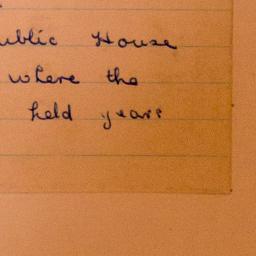 ublic House
where the
held years